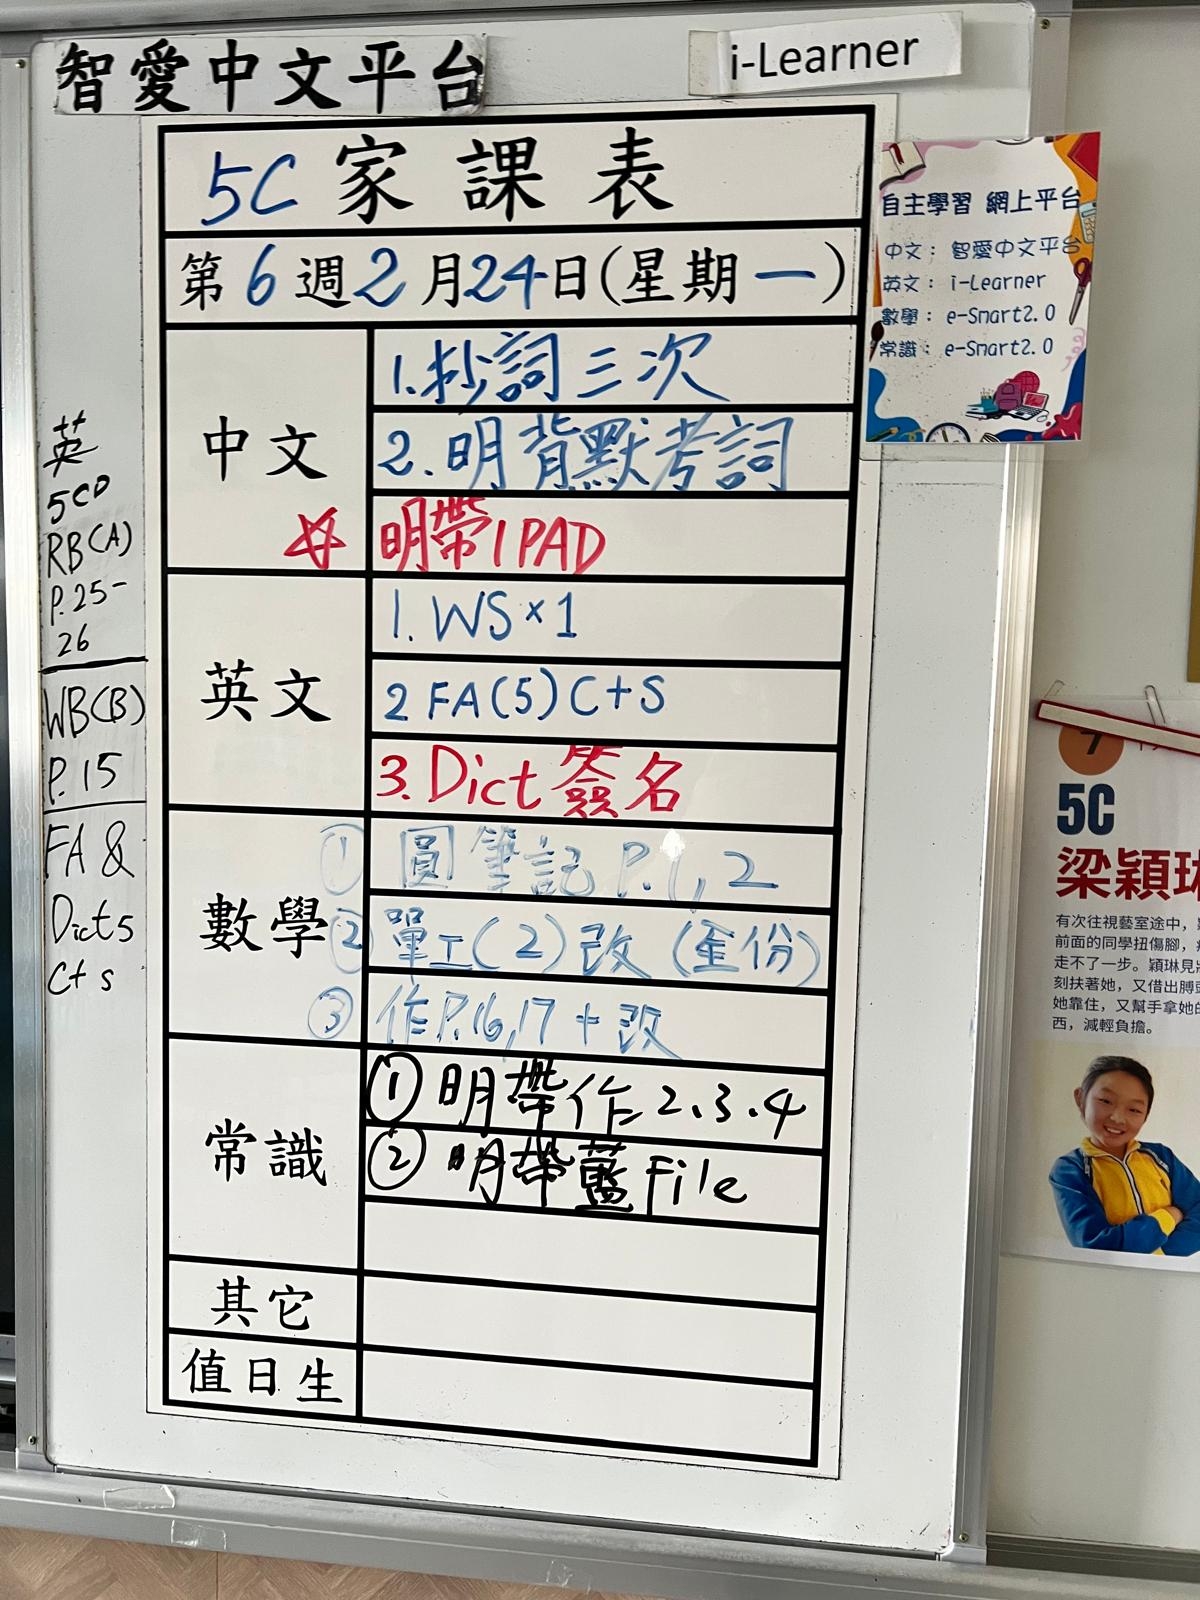 智愛中文平台
i-Learner
5C 家課表
第6週2月24日(星期一)
中文
1.抄詞三次
2.明背默考詞
☆ 明帶IPAD
英文
1. WS×1
2 FA(5) C+S
3. Dict 簽名
數學
① 圓筆記 P.1,2
② 單工(2)改(全份)
③ 作P.16,17+改
常識
① 明帶作2.3.4
② 明帶藍File
其它
值日生
英
5CD
RB(A)
P.25-
26
WB(B)
P.15
FA &
Dict 5
C+S
自主學習 網上平台
中文： 智愛中文平台
英文： i-Learner
數學： e-Smart2.0
常識： e-Smart2.0
5C
梁穎琳
有次往視藝室途中，
前面的同學扭傷腳，
走不了一步。穎琳見
刻扶著她，又借出膊
她靠住，又幫手拿她的
西，減輕負擔。